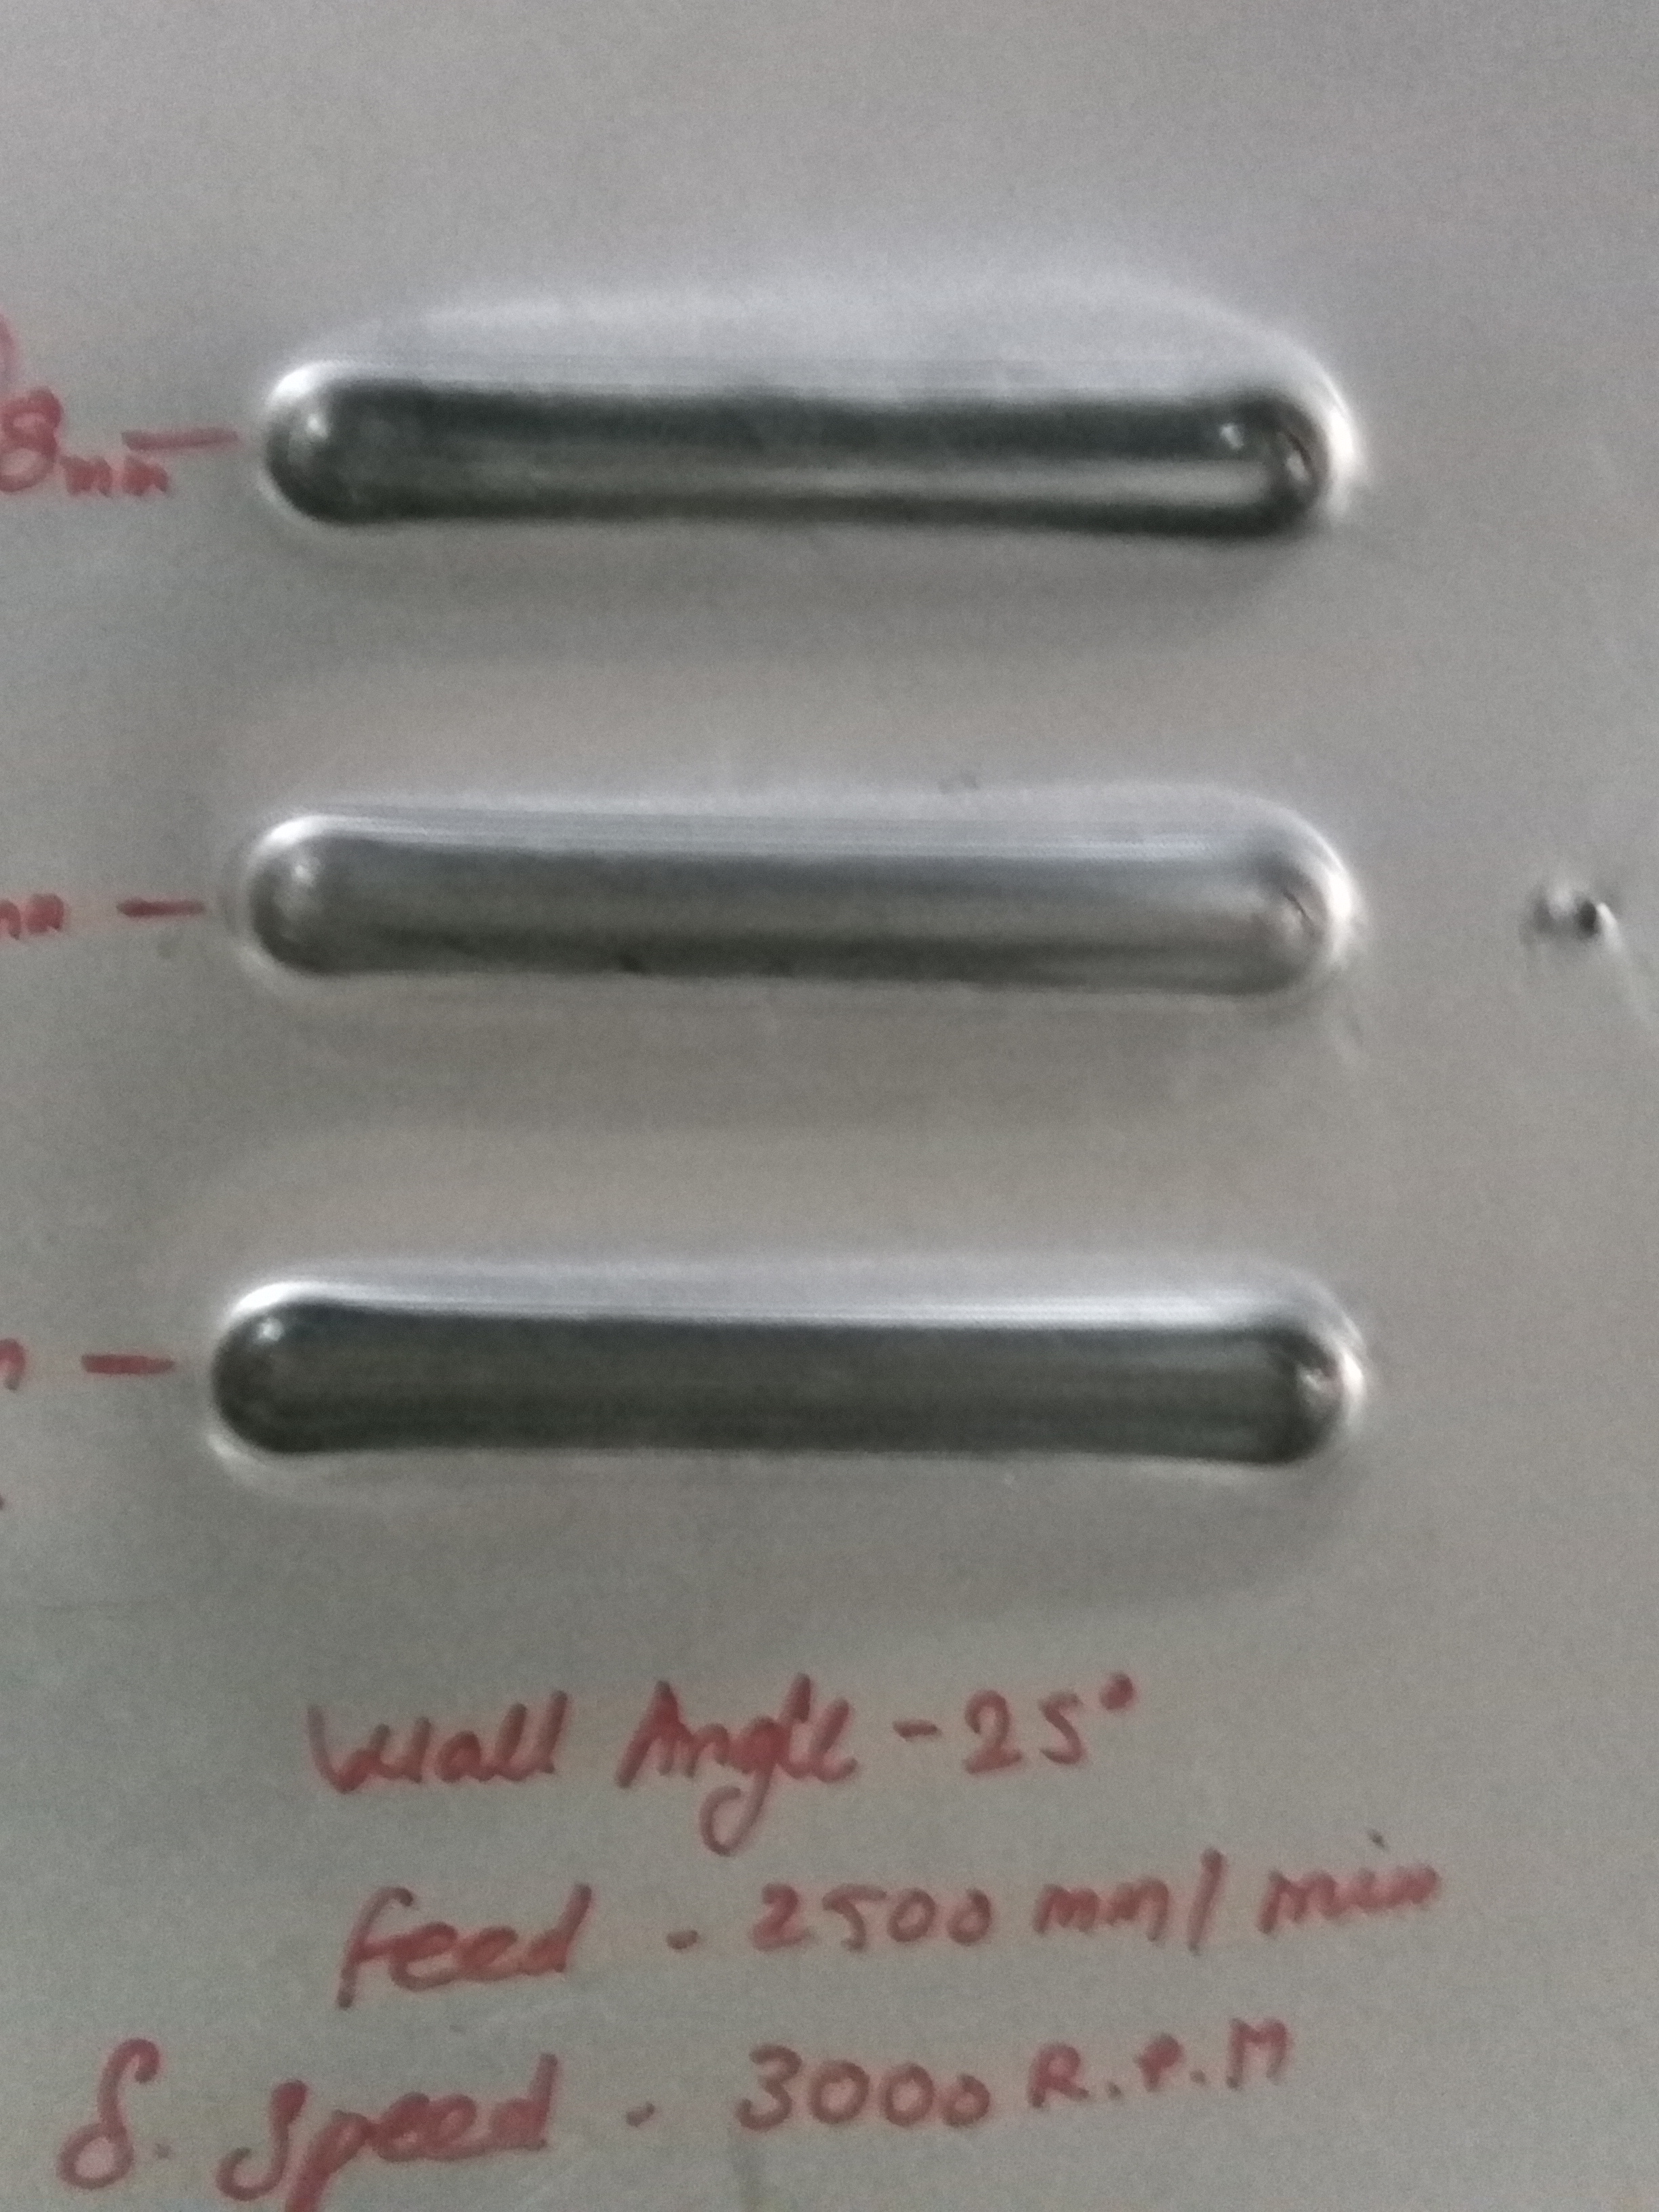 8mm -
-
-
Wall Angle - 25°
feed - 2500 mm/min
S. Speed - 3000 R.P.M